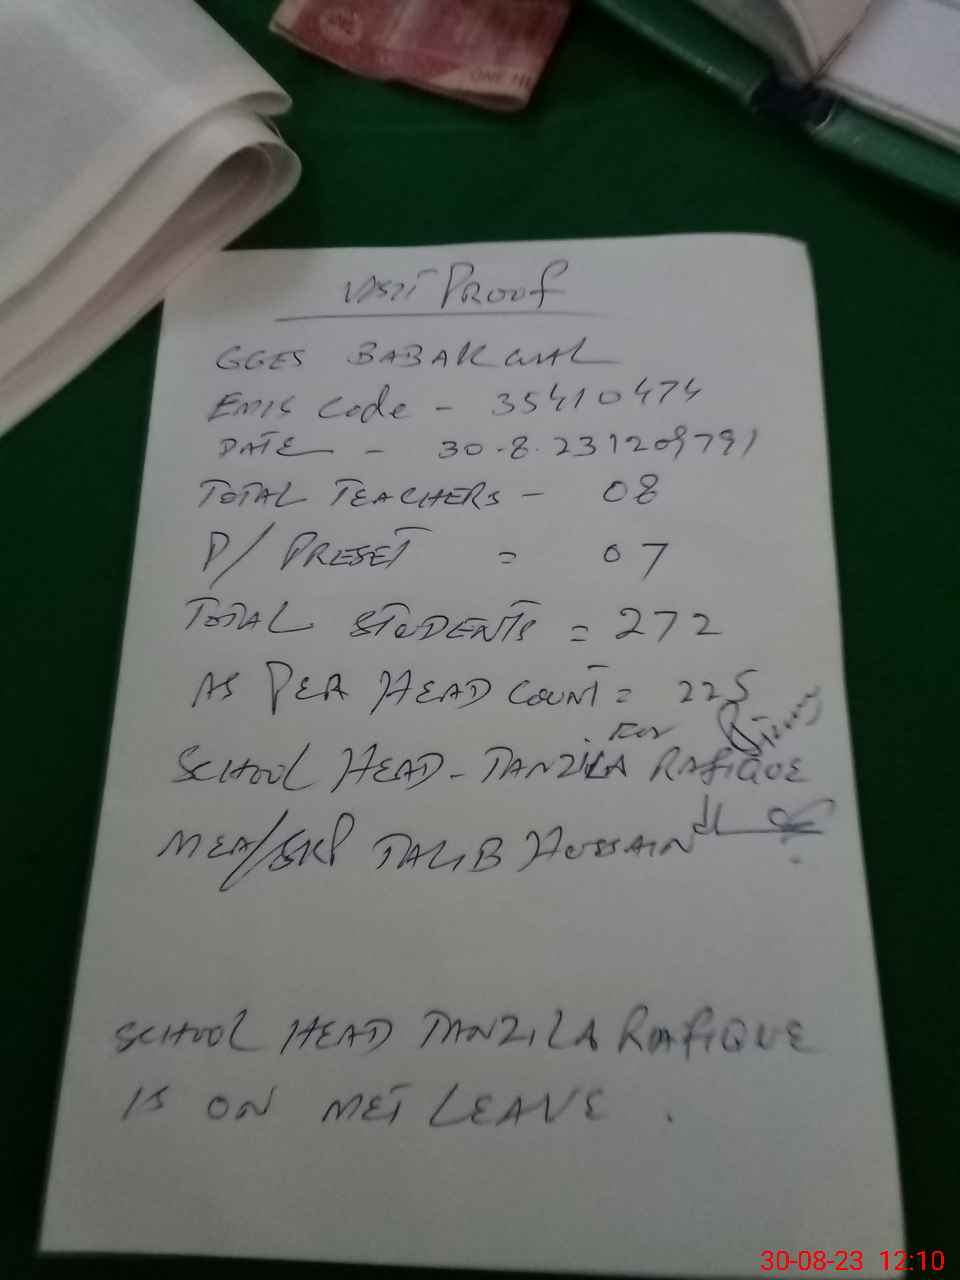 ONE HU
VISIT PROOF
GGES BABAKWAL
EMIS Code - 35410474
DATE - 30.8.231209791
TOTAL TEACHERS - 08
P/ PRESET = 07
TOTAL STUDENTS = 272
AS PER HEAD COUNT = 225
For
SCHOOL HEAD - TANZILA RAFIQUE
MEA/SKP TALIB HUSSAIN
SCHOOL HEAD TANZILA RAFIQUE
IS ON MET LEAVE .
30-08-23 12:10